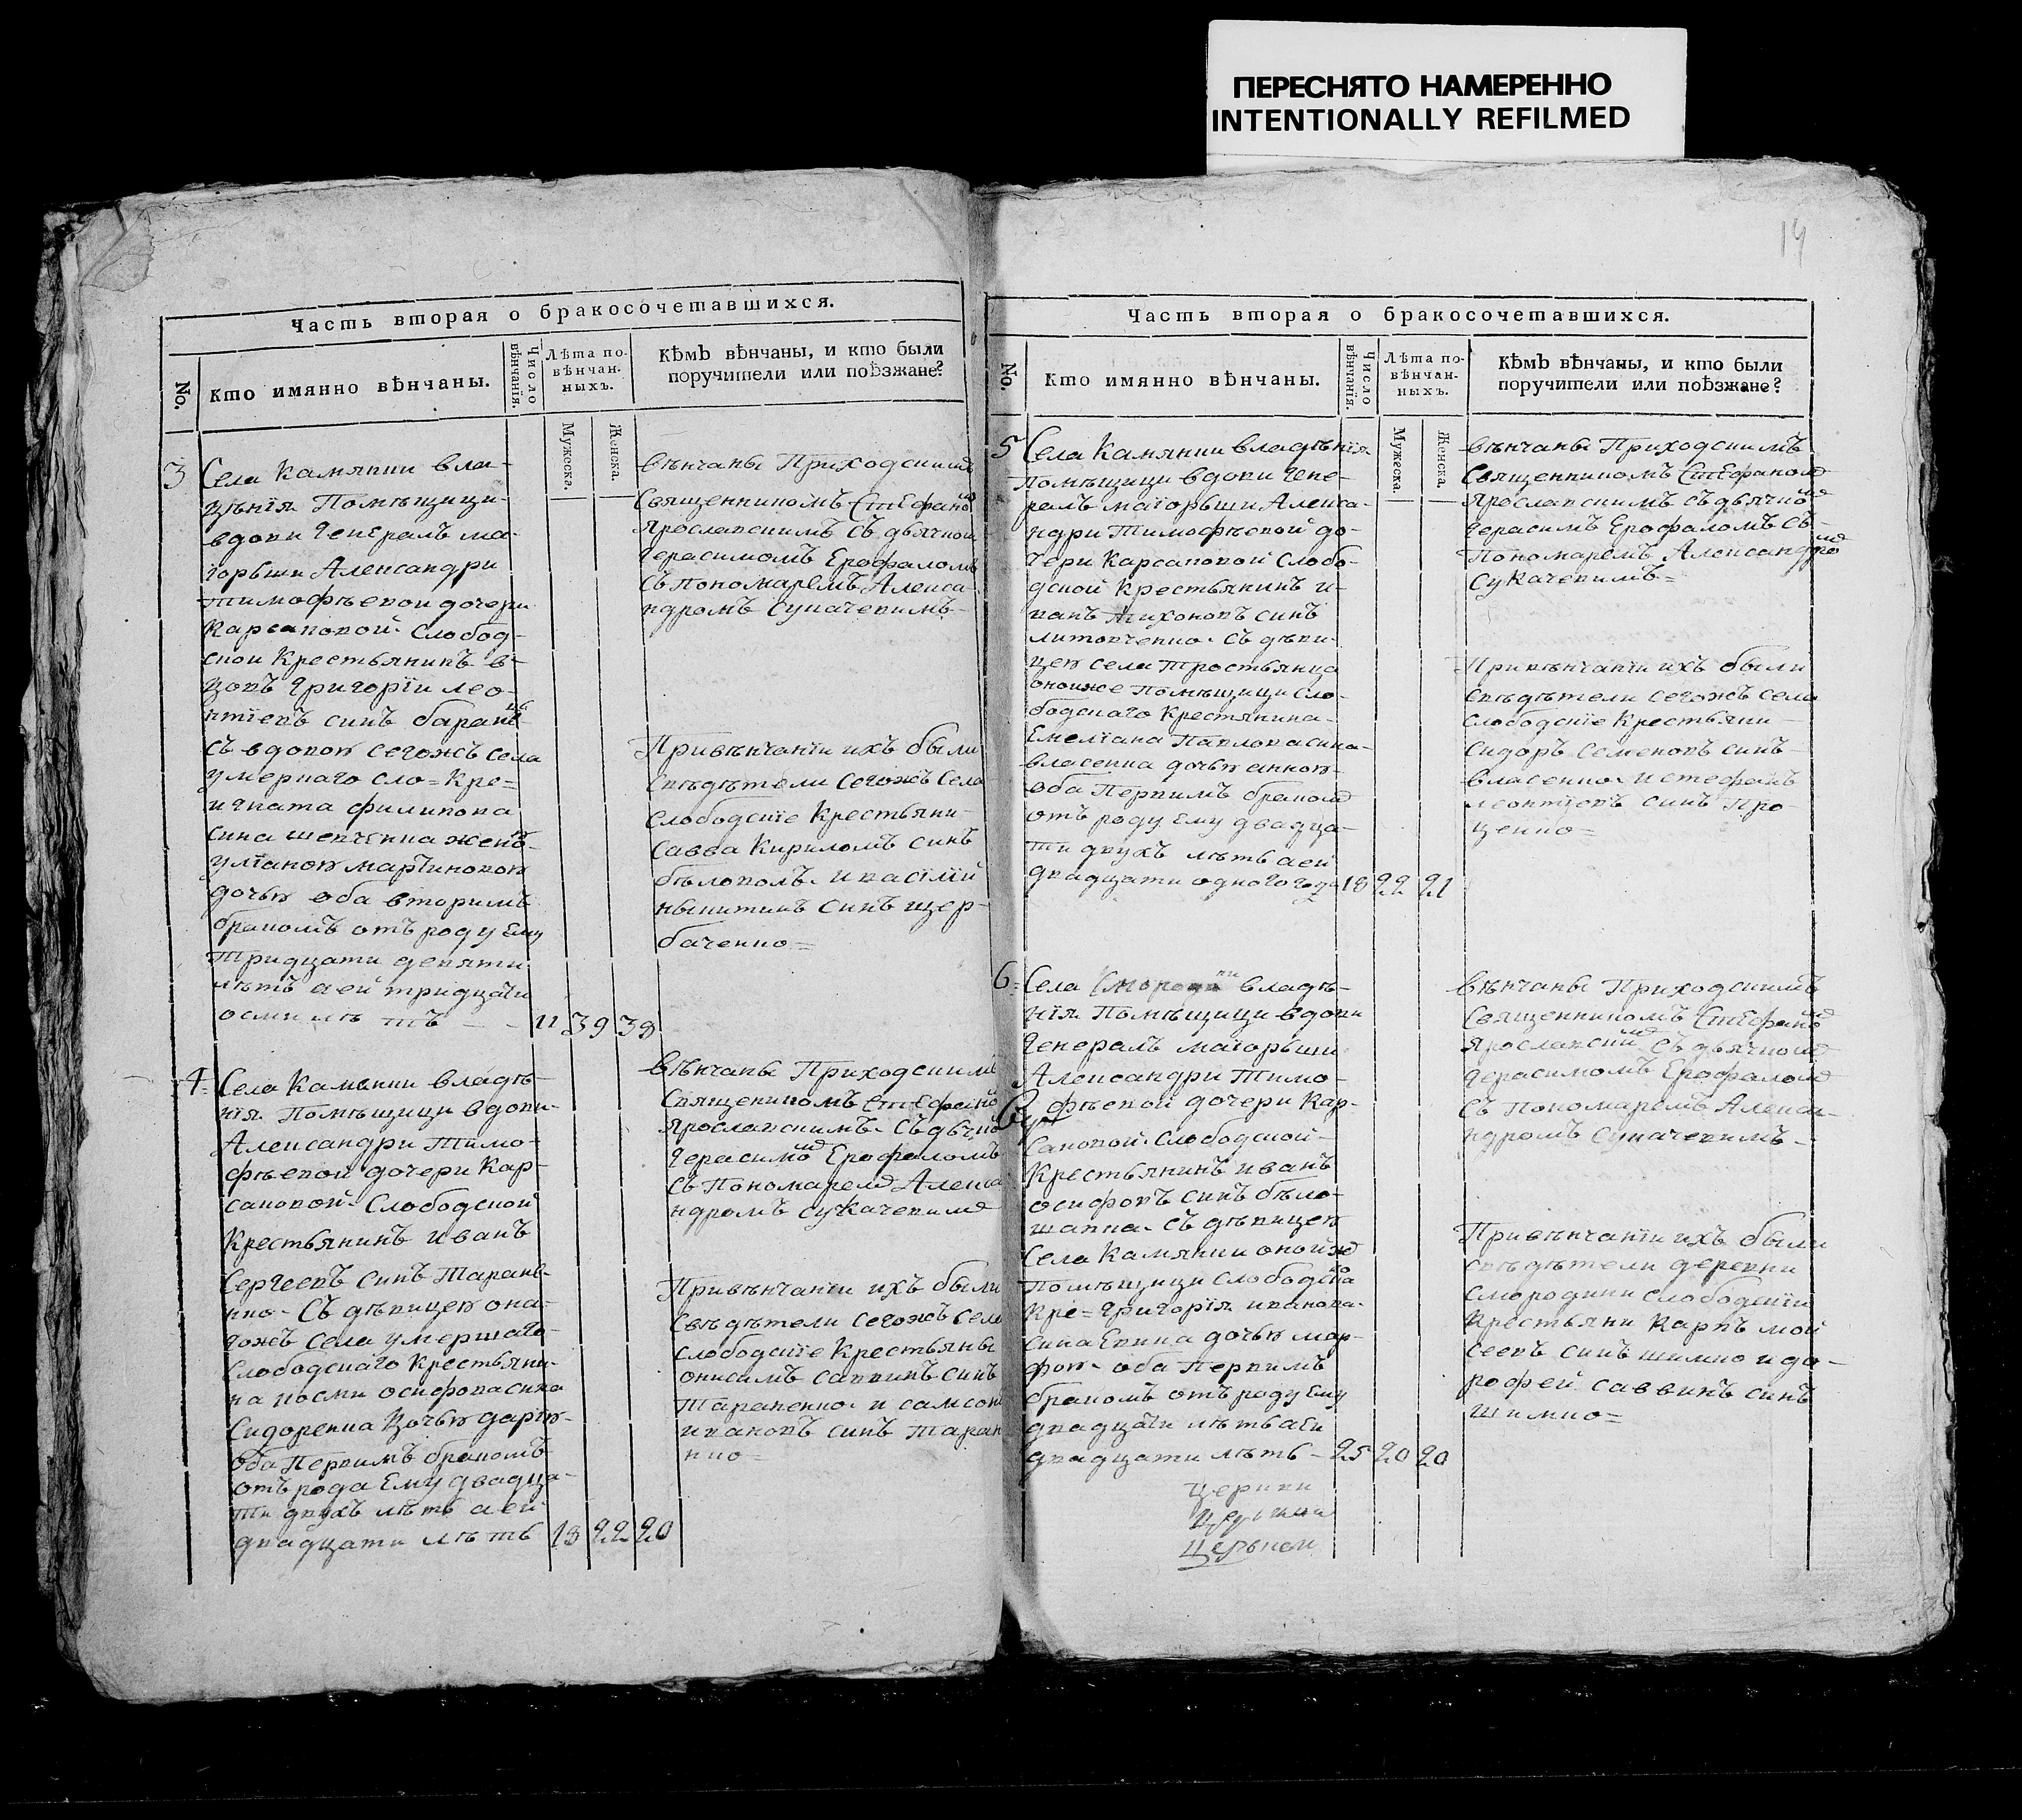 ПЕРЕСНЯТО НАМЕРЕННО
INTENTIONALLY REFILMED
14
Часть вторая о бракосочетавшихся.
No.
Кто имянно вѣнчаны.
Число вѣнчанія.
Лѣта повѣнчанныхъ.
Мужеска.
Женска.
Кѣмъ вѣнчаны, и кто были
поручители или поѣзжане?
3
Села Камянки вла-
дѣнія Помѣщици
вдови Генералъ ма-
іорьши Александри
Тимофѣевой дочери
Карсаковой Слобод-
ской Крестьянинъ в-
довъ Григорій лео-
нтіевъ синъ
съ вдовою сегожъ села
умершаго сло= Кре=
игната филипова
сина шевченка жено
уліаною мартиновою
дочью оба вторимъ
бракомъ отъ роду Ему
Тридцати девяти
лѣтъ аей тридцати
осми лѣтъ - - 11 39 38
вѣнчаны Приходскимъ
Священникомъ Стефаномъ
Ярославскимъ Съ дьячкомъ
Герасимомъ Ерофаломъ
Съ Пономаремъ Алекса-
ндромъ Сукачевимъ
Привѣнчаніи ихъ были
свѣдѣтели Сегожъ Села
Слободскіе Крестьяни
Савва Кириломъ синъ
бѣловолъ и васілій
никитинъ синъ щер-
баченко=
4
Села Камянки владѣ-
нія Помѣщици вдови
Александри Тимо-
фѣевой дочери Кар-
саковой Слободской
Крестьянинъ иванъ
Сергеевъ синъ Таране-
нко Съ дѣвицею она-
гожъ Села умершаго
Слободскаго Крестьяни-
на осифова сина
Сидоренка дочью даріею
оба Первимъ бракомъ
отъ рода Ему двадца-
ти двухъ лѣтъ аей
двадцати лѣтъ 18 22 20
вѣнчаны Приходскимъ
Священикомъ Стефаномъ
Ярославскимъ Съ дьячко
Герасимомъ Ерофаломъ
Съ Пономаремъ Алекса
ндромъ Сукачевимъ
Привѣнчаніи ихъ были
Свѣдѣтели Сегожъ Села
слободскіе Крестьяны
онисимъ саввинъ синъ
Тараненко и самсонъ
ивановъ синъ Таране
нко=
Часть вторая о бракосочетавшихся.
No.
Кто имянно вѣнчаны.
Число вѣнчанія.
Лѣта повѣнчанныхъ.
Мужеска.
Женска.
Кѣмъ вѣнчаны, и кто были
поручители или поѣзжане?
5
Села Камянки владѣнія
помѣщици вдови Гене-
ралъ маіорьши Алекса-
ндри Тимофѣевой до-
чери Карсаковой Слобо-
дской Крестьянинъ и-
ванъ Тихоновъ синъ
литовченко Съ дѣви-
цею села Тростьянца
оноиже Помѣщици сло-
бодскаго Крестянина
Емеліана Павлова сина
власенка дочью анною
оба Первимъ бракомъ
отъ роду Ему двадца-
ти двухъ лѣтъ аей
двадцати одного года 18 22 21
вѣнчаны Приходскимъ
Священникомъ Стефаномъ
Ярославскимъ Съ дьячкомъ
Герасимъ Ерофаломъ Съ
Пономаремъ Александромъ
Сукачевимъ=
Привѣнчаніи ихъ были
Свѣдѣтели сегожъ села
слободскіе Крестьяни
сидоръ Семеновъ синъ
власенко и стефанъ
леонтіевъ синъ Про-
ценко=
6
Села Смородини владѣ-
нія Помѣщици вдови
Генералъ маіорьши
Александри Тимо-
фѣевой дочери Кар-
саковой Слободской
Крестьянинъ иванъ
осифовъ синъ бѣло-
шапка Съ дѣвицею
Села Камянки онойже
помѣщици Слободска
Кре= Григорія иванова
сина дочью мар-
фою оба Первимъ
бракомъ отъ роду Ему
двадцати лѣтъ аей
двадцати лѣтъ - 25 20 20
вѣнчаны Приходскимъ
Священникомъ Стефаномъ
Ярославскимъ Съ дьячкомъ
Герасимомъ Ерофаломъ
Съ Пономаремъ Алекса-
ндромъ Сукачевимъ
Привѣнчаніи ихъ были
Свѣдѣтели деревни
Смородини слободскіи
Крестьяни Карпъ мой
сеевъ синъ шимко и до-
рофей саввинъ синъ
шимко=
церкви